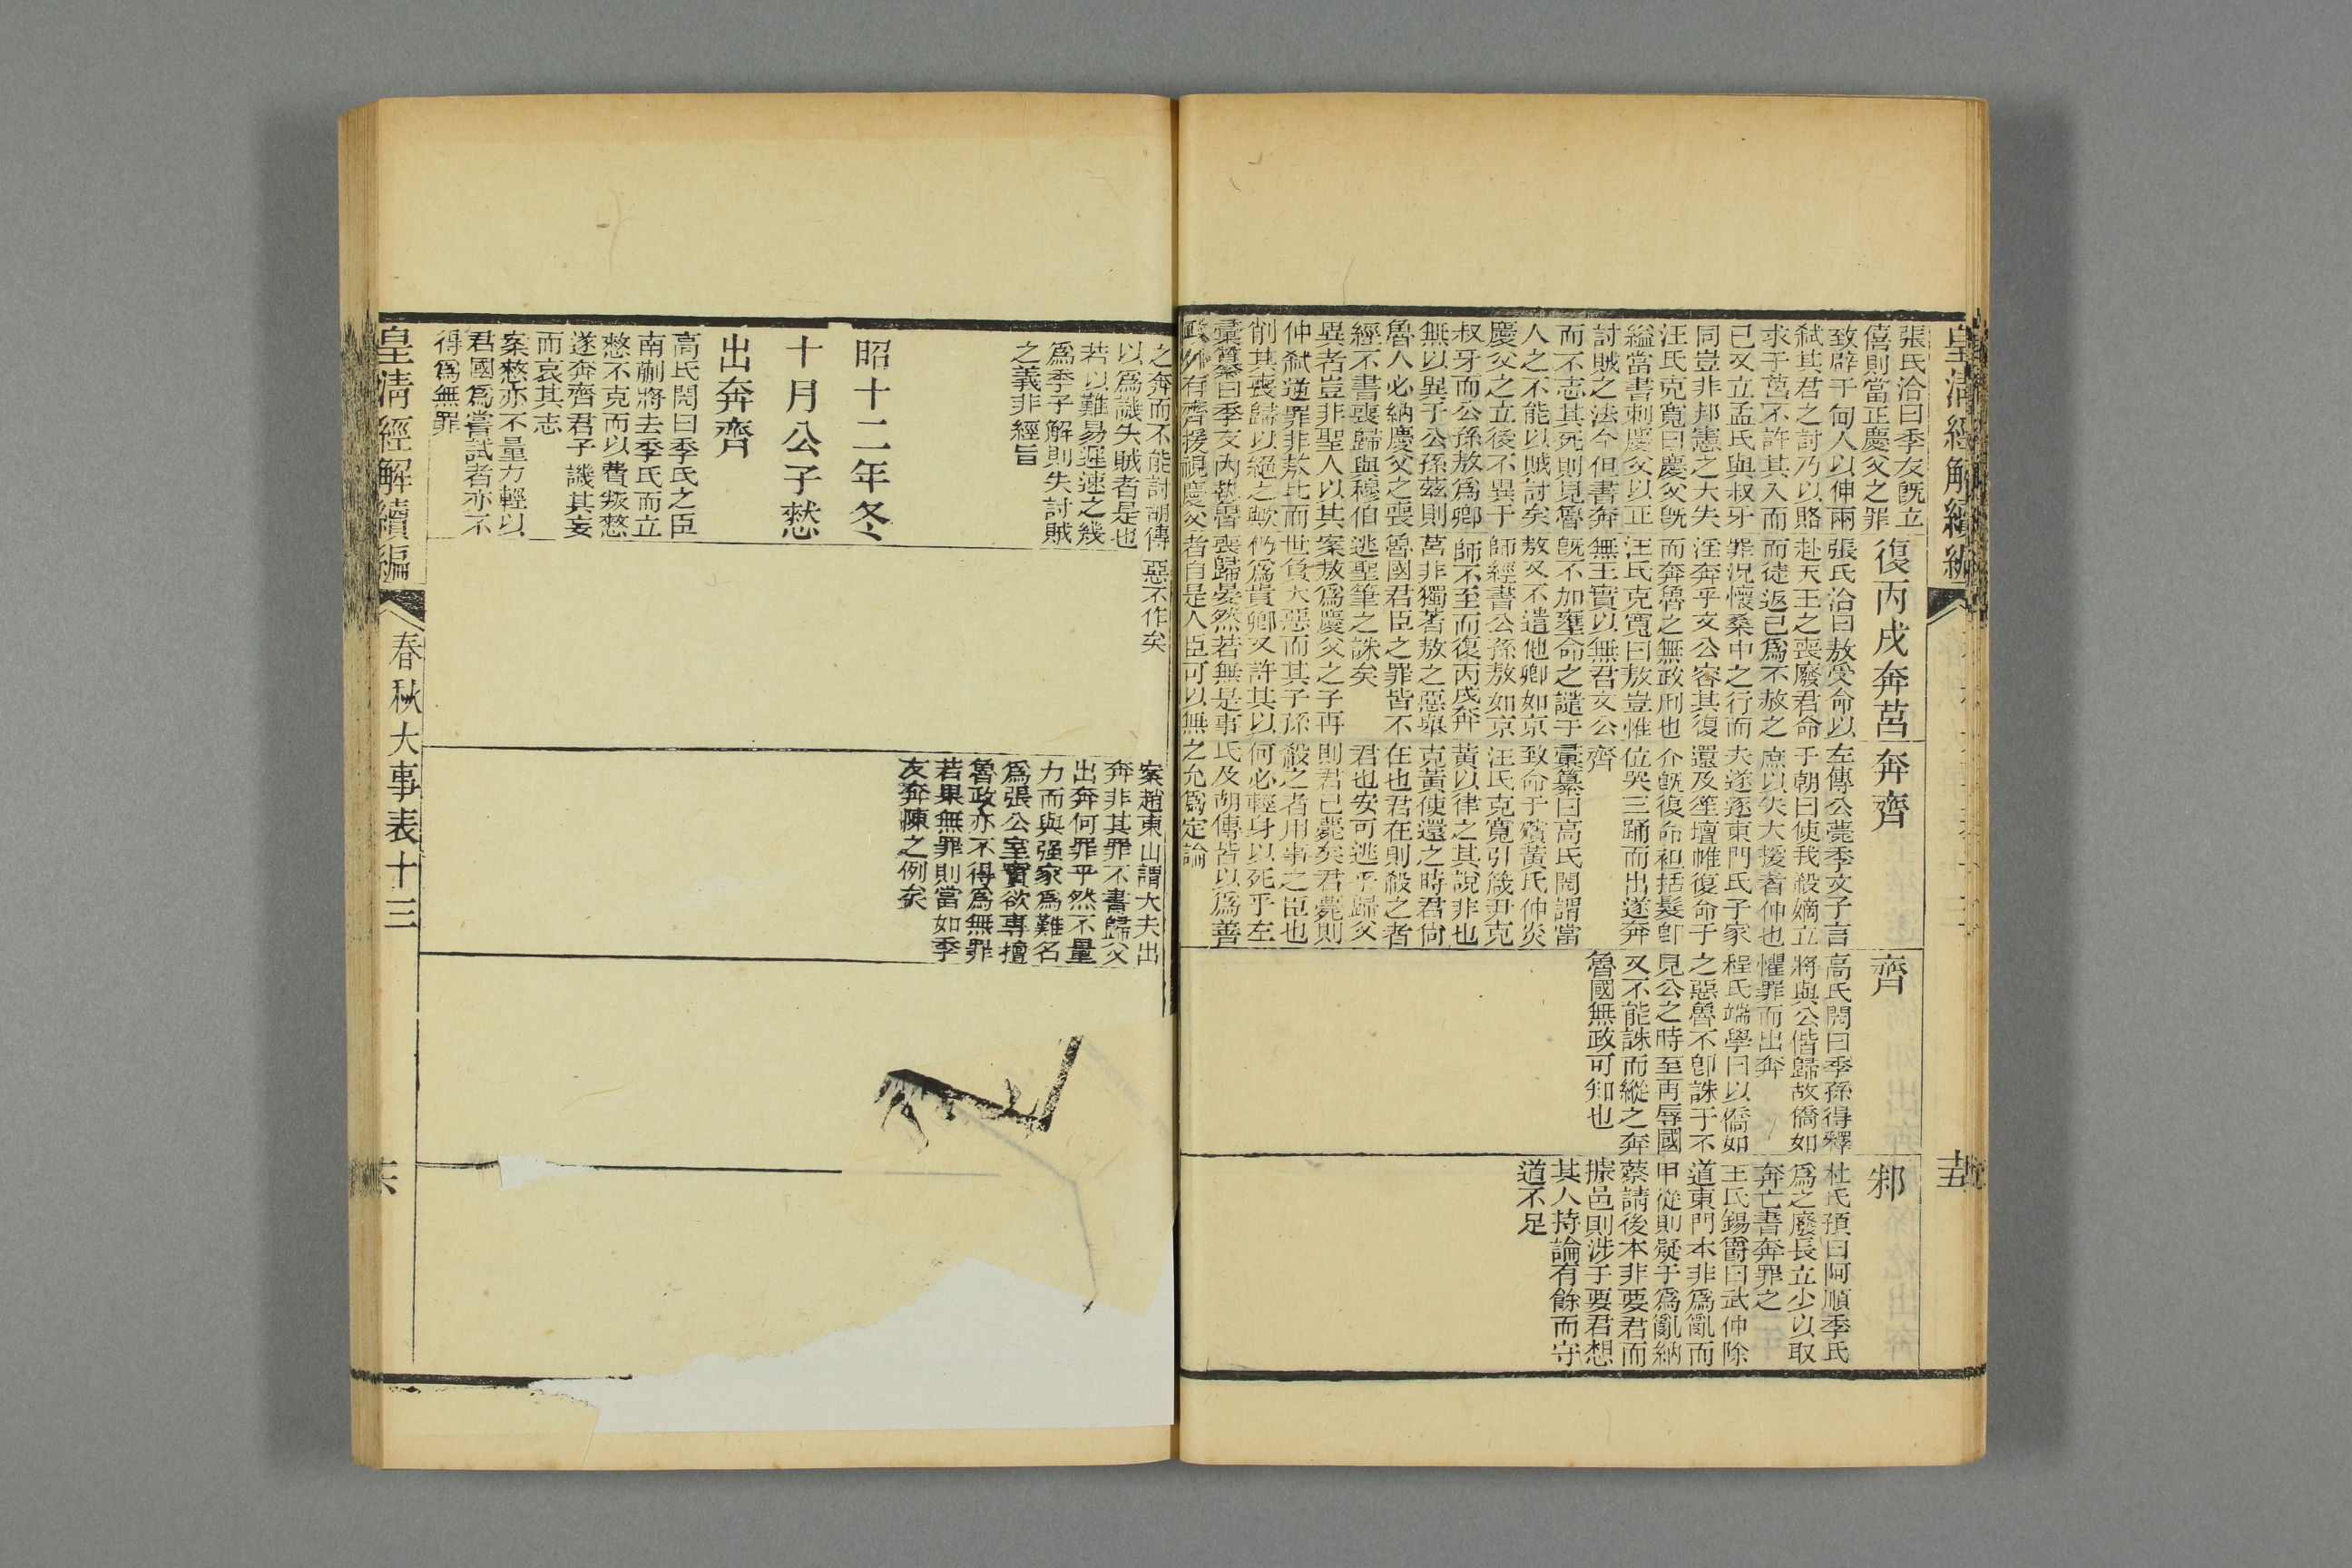 皇清經解續編
張氏洽曰季友既立
僖則當正慶父之罪
致辟于甸人以伸兩
弒其君之討乃以賂
求于莒不許其入而
已又立孟氏與叔牙
同豈非邦憲之大失
汪氏克寬曰慶父既
縊當書刺慶父以正
討賊之法今但書奔
而不志其死則見魯
人之不能以賊討矣
慶父之立後不異于
叔牙而公孫敖爲卿
無以異于公孫茲則
魯人必納慶父之喪
經不書喪歸與穆伯
異者豈非聖人以其
仲弒逆罪非敖比而
削其喪歸以絕之歟
彙纂曰季友內執魯
政外有齊援視慶父
復丙戌奔莒
張氏洽曰敖受命以
赴天王之喪廢君命
而徒返已爲不赦之
罪況懷桑中之行而
淫奔乎文公容其復
而奔魯之無政刑也
汪氏克寬曰敖豈惟
無王實以無君文公
既不加壅命之譴于
敖又不遣他卿如京
師經書公孫敖如京
師不至而復丙戌奔
莒非獨著敖之惡舉
魯國君臣之罪皆不
逃聖筆之誅矣
案敖爲慶父之子再
世負大惡而其子孫
仍爲貴卿又許其以
喪歸晏然若無是事
者自是人臣可以無
奔齊
左傳公薨季文子言
于朝曰使我殺嫡立
庶以失大援者仲也
夫遂逐東門氏子家
還及笙壇帷復命于
介既復命袒括髮卽
位哭三踊而出遂奔
齊
彙纂曰高氏閌謂當
致命于殯黃氏仲炎
汪氏克寬引箴尹克
黃以律之其說非也
克黃使還之時君尙
在也君在則殺之者
君也安可逃乎歸父
則君已薨矣君薨則
殺之者用事之臣也
何必輕身以死乎左
氏及胡傳皆以爲善
之允爲定論
齊
高氏閌曰季孫得釋
將與公偕歸故僑如
懼罪而出奔
程氏端學曰以僑如
之惡魯不卽誅于不
見公之時至再辱國
又不能誅而縱之奔
魯國無政可知也
邾
杜氏預曰阿順季氏
爲之廢長立少以取
奔亡書奔罪之
王氏錫爵曰武仲除
道東門本非爲亂而
甲從則疑于爲亂納
蔡請後本非要君而
據邑則涉于要君想
其人持論有餘而守
道不足
之奔而不能討胡傳
以爲譏失賊者是也
若以難易遲速之幾
爲季子解則失討賊
之義非經旨
昭十二年冬
十月公子憖
出奔齊
高氏閌曰季氏之臣
南蒯將去季氏而立
憖不克而以費叛憖
遂奔齊君子譏其妄
而哀其志
案憖亦不量力輕以
君國爲嘗試者亦不
得爲無罪
惡不作矣
案趙東山謂大夫出
奔非其罪不書歸父
出奔何罪乎然不量
力而與强家爲難名
爲張公室實欲專擅
魯政亦不得爲無罪
若果無罪則當如季
友奔陳之例矣
皇清經解續編
春秋大事表十三